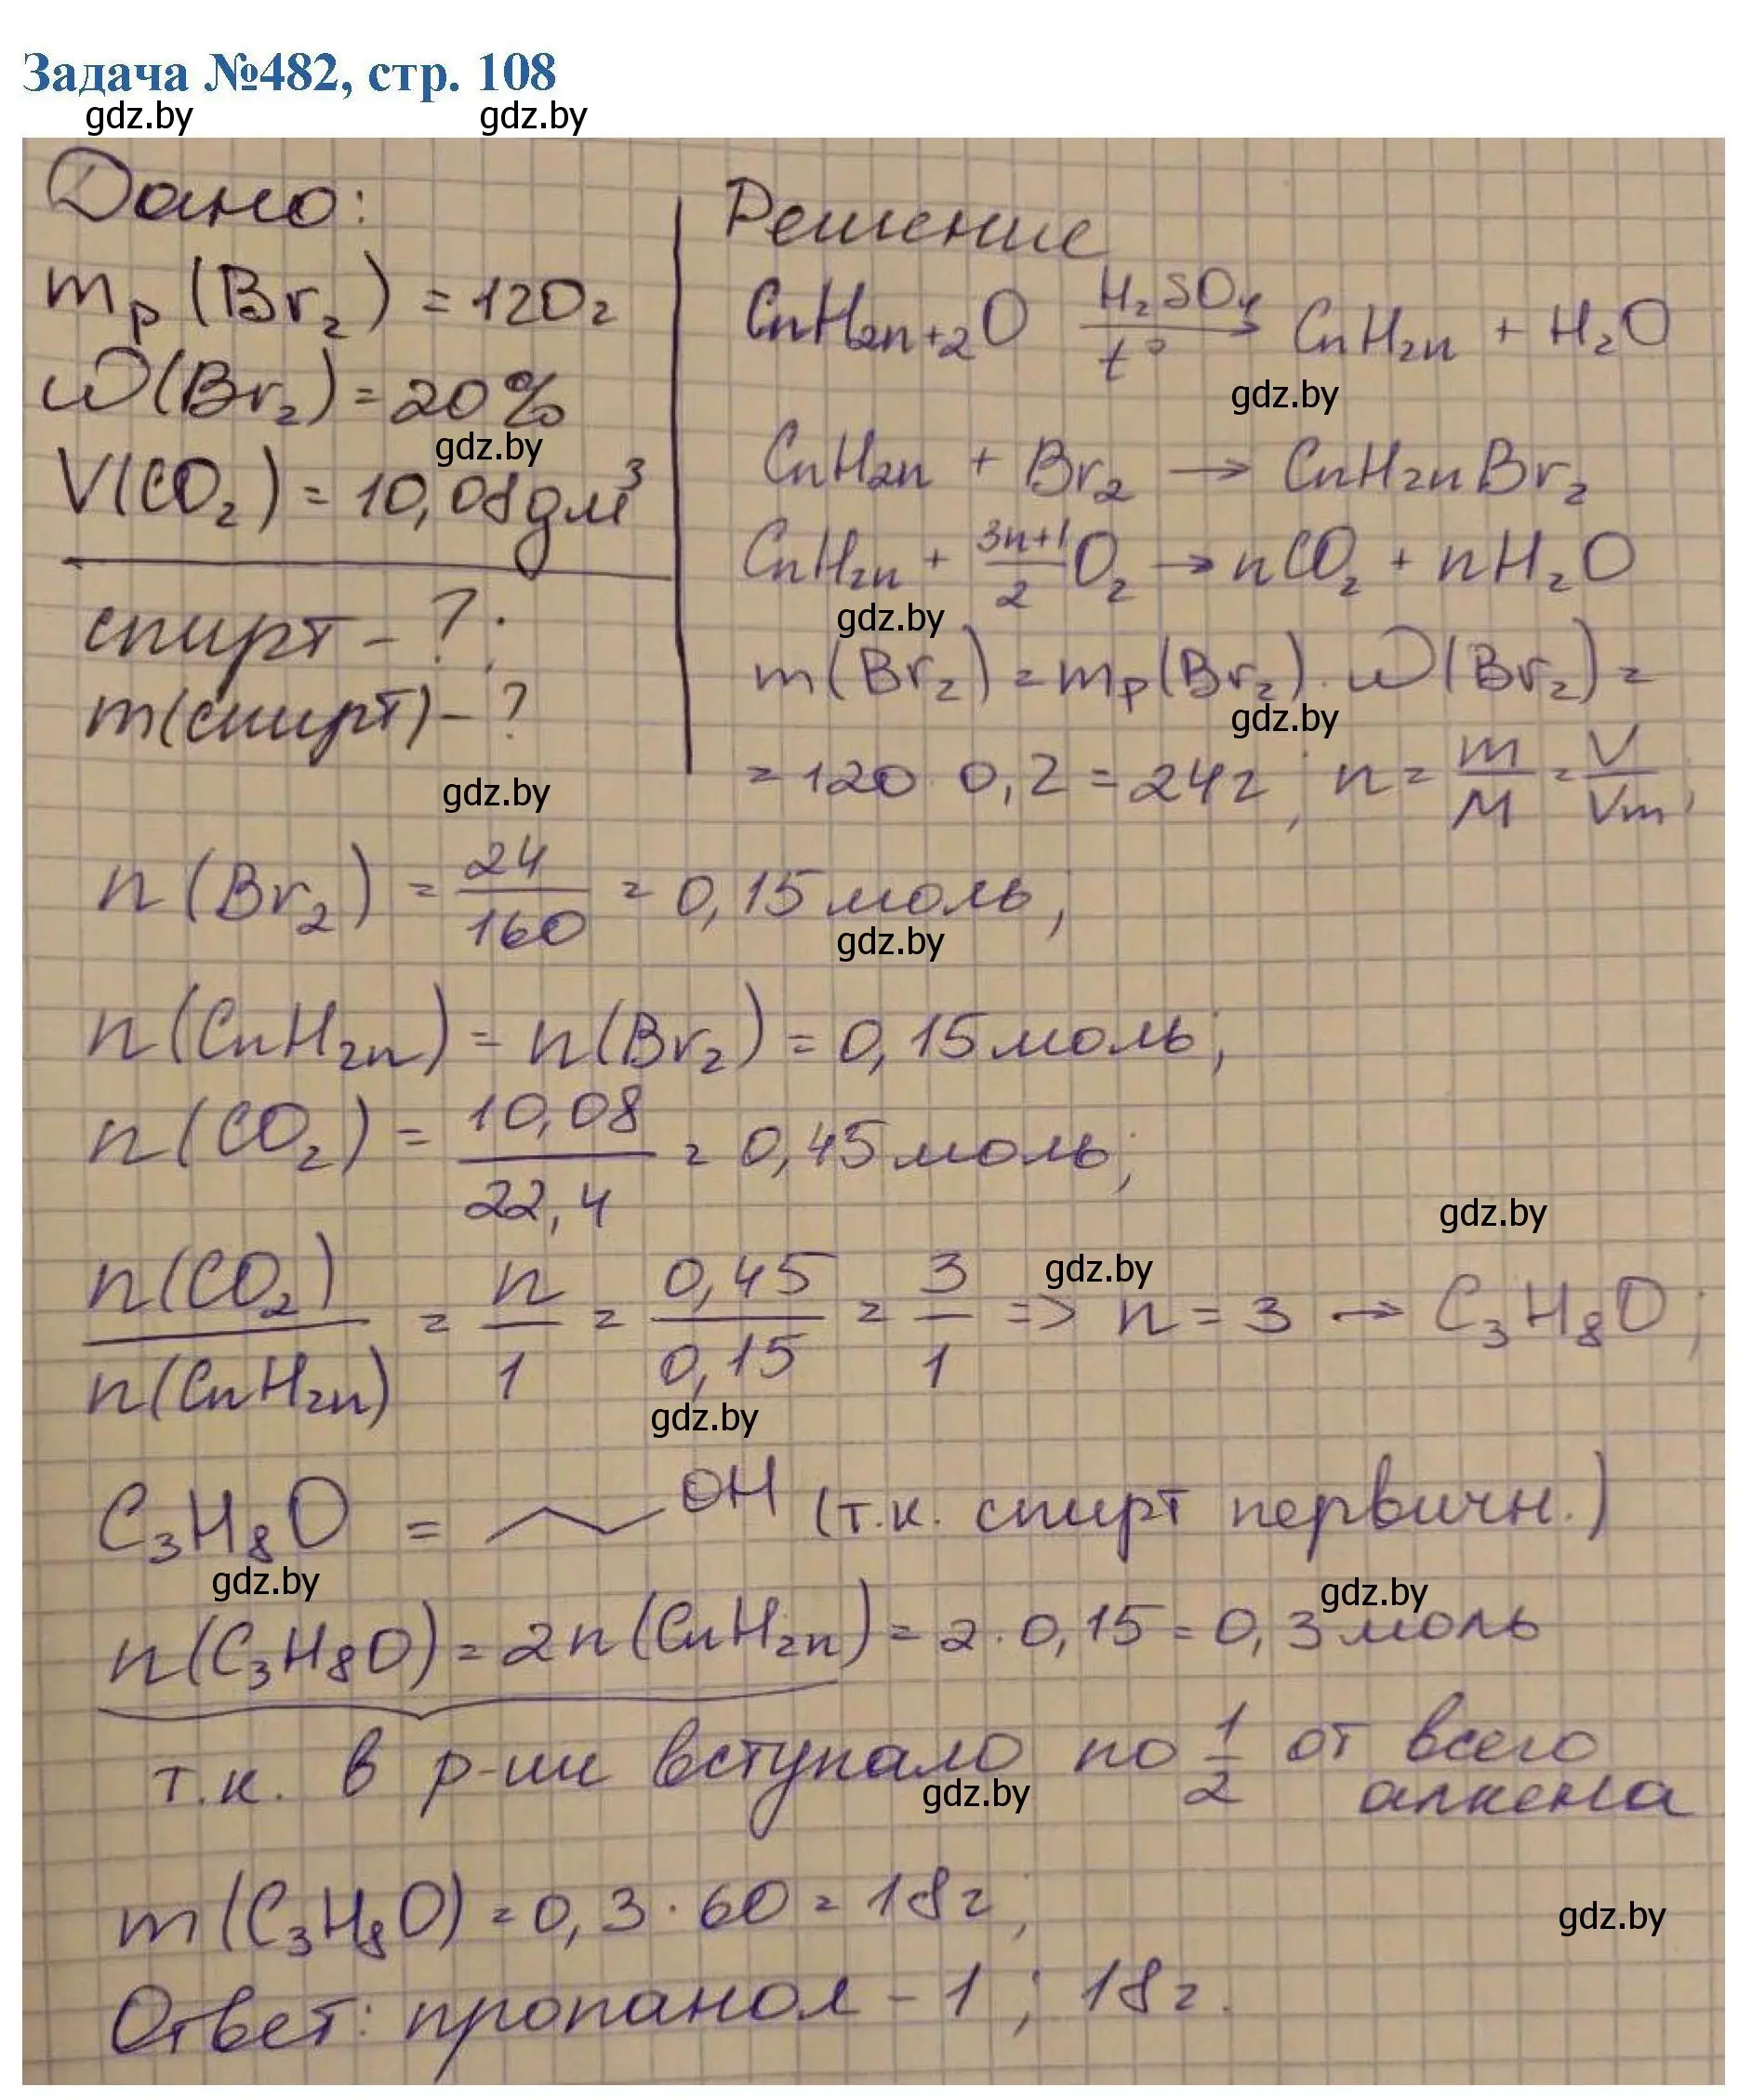 Задача №482, стр. 108
gdz.by gdz.by
Дано:
mр(Br₂) = 120г
ω(Br₂) = 20%
gdz.by
V(CO₂) = 10,08дм³
спирт - ?;
m(спирт) - ?
gdz.by
Решение
CnH2n+2O H₂SO₄ t° → CnH2n + H₂O
gdz.by
CnH2n + Br₂ → CnH2nBr₂
CnH2n + (3n+1)/2 O₂ → nCO₂ + nH₂O
gdz.by
m(Br₂) = mр(Br₂) · ω(Br₂) =
gdz.by
= 120 · 0,2 = 24г; n = m/M = V/Vm;
n(Br₂) = 24/160 = 0,15 моль;
gdz.by
n(CnH2n) = n(Br₂) = 0,15 моль;
n(CO₂) = 10,08/22,4 = 0,45 моль;
gdz.by
gdz.by
n(CO₂)/n(CnH2n) = n/1 = 0,45/0,15 = 3/1 => n = 3 → C₃H₈O;
gdz.by
C₃H₈O = OH (т.к. спирт первичн.)
gdz.by gdz.by
n(C₃H₈O) = 2n(CnH2n) = 2 · 0,15 = 0,3 моль
т.к. в р-ии вступало по 1/2 от всего
алкена
gdz.by
m(C₃H₈O) = 0,3 · 60 = 18г;
gdz.by
Ответ: пропанол - 1; 18г.